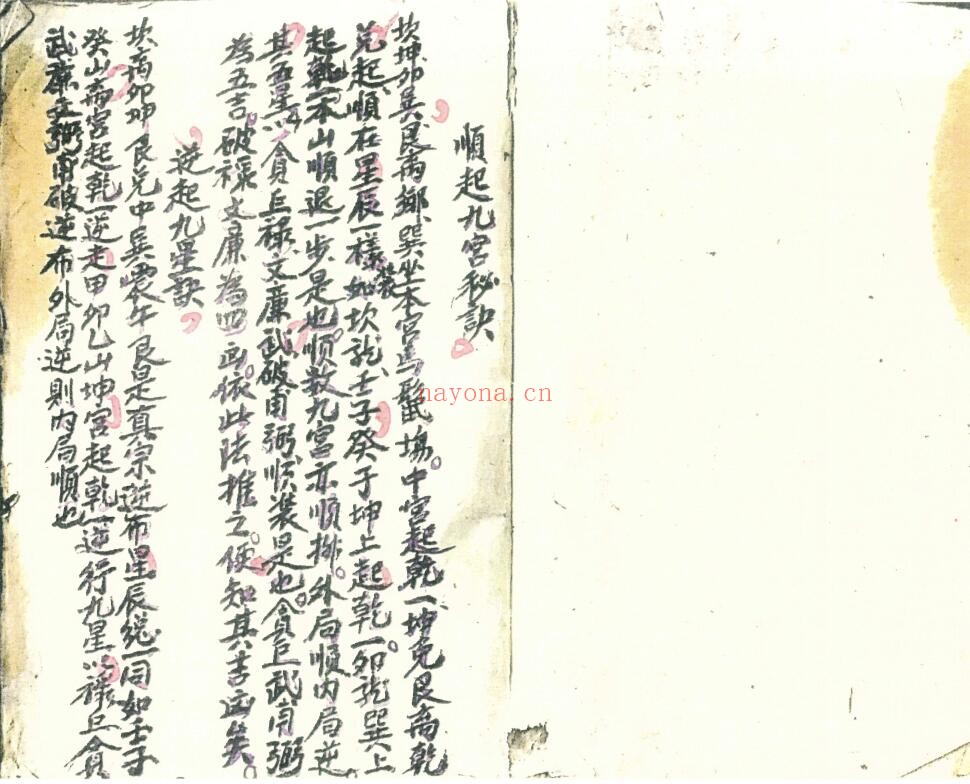 順起九宮秘訣
坎坤卯巽艮离鄉巽坐本宮馬鬣塲中宮起乾一坤兌艮离乾
兌起順在星辰一樣裝如坎龍壬子癸于坤上起乾一卯龍巽上
起乾一本山順退一步是也順数九宮亦順排外局順内局逆
其五星以貪巨禄文廉武破甫弼順裝是也貪巨武甫弼
為五吉破禄文廉為四凶依此法推之便知其吉凶矣
逆起九星訣
坎离卯坤艮兌中巽震午艮是真宗逆布星辰総一同如壬子
癸山离宮起乾一逆走甲卯乙山坤宮起乾一逆行九星以禄巨貪
武廉文弼甫破逆布外局逆則内局順也
nayona.cn